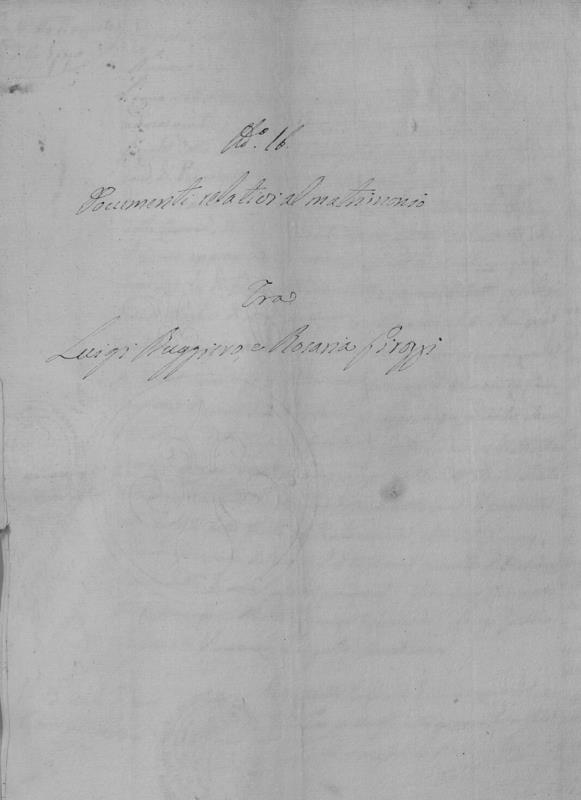 N.º 16
Documenti relativi al matrimonio
Tra
Luigi Ruggiero, e Rosaria Pirozzi